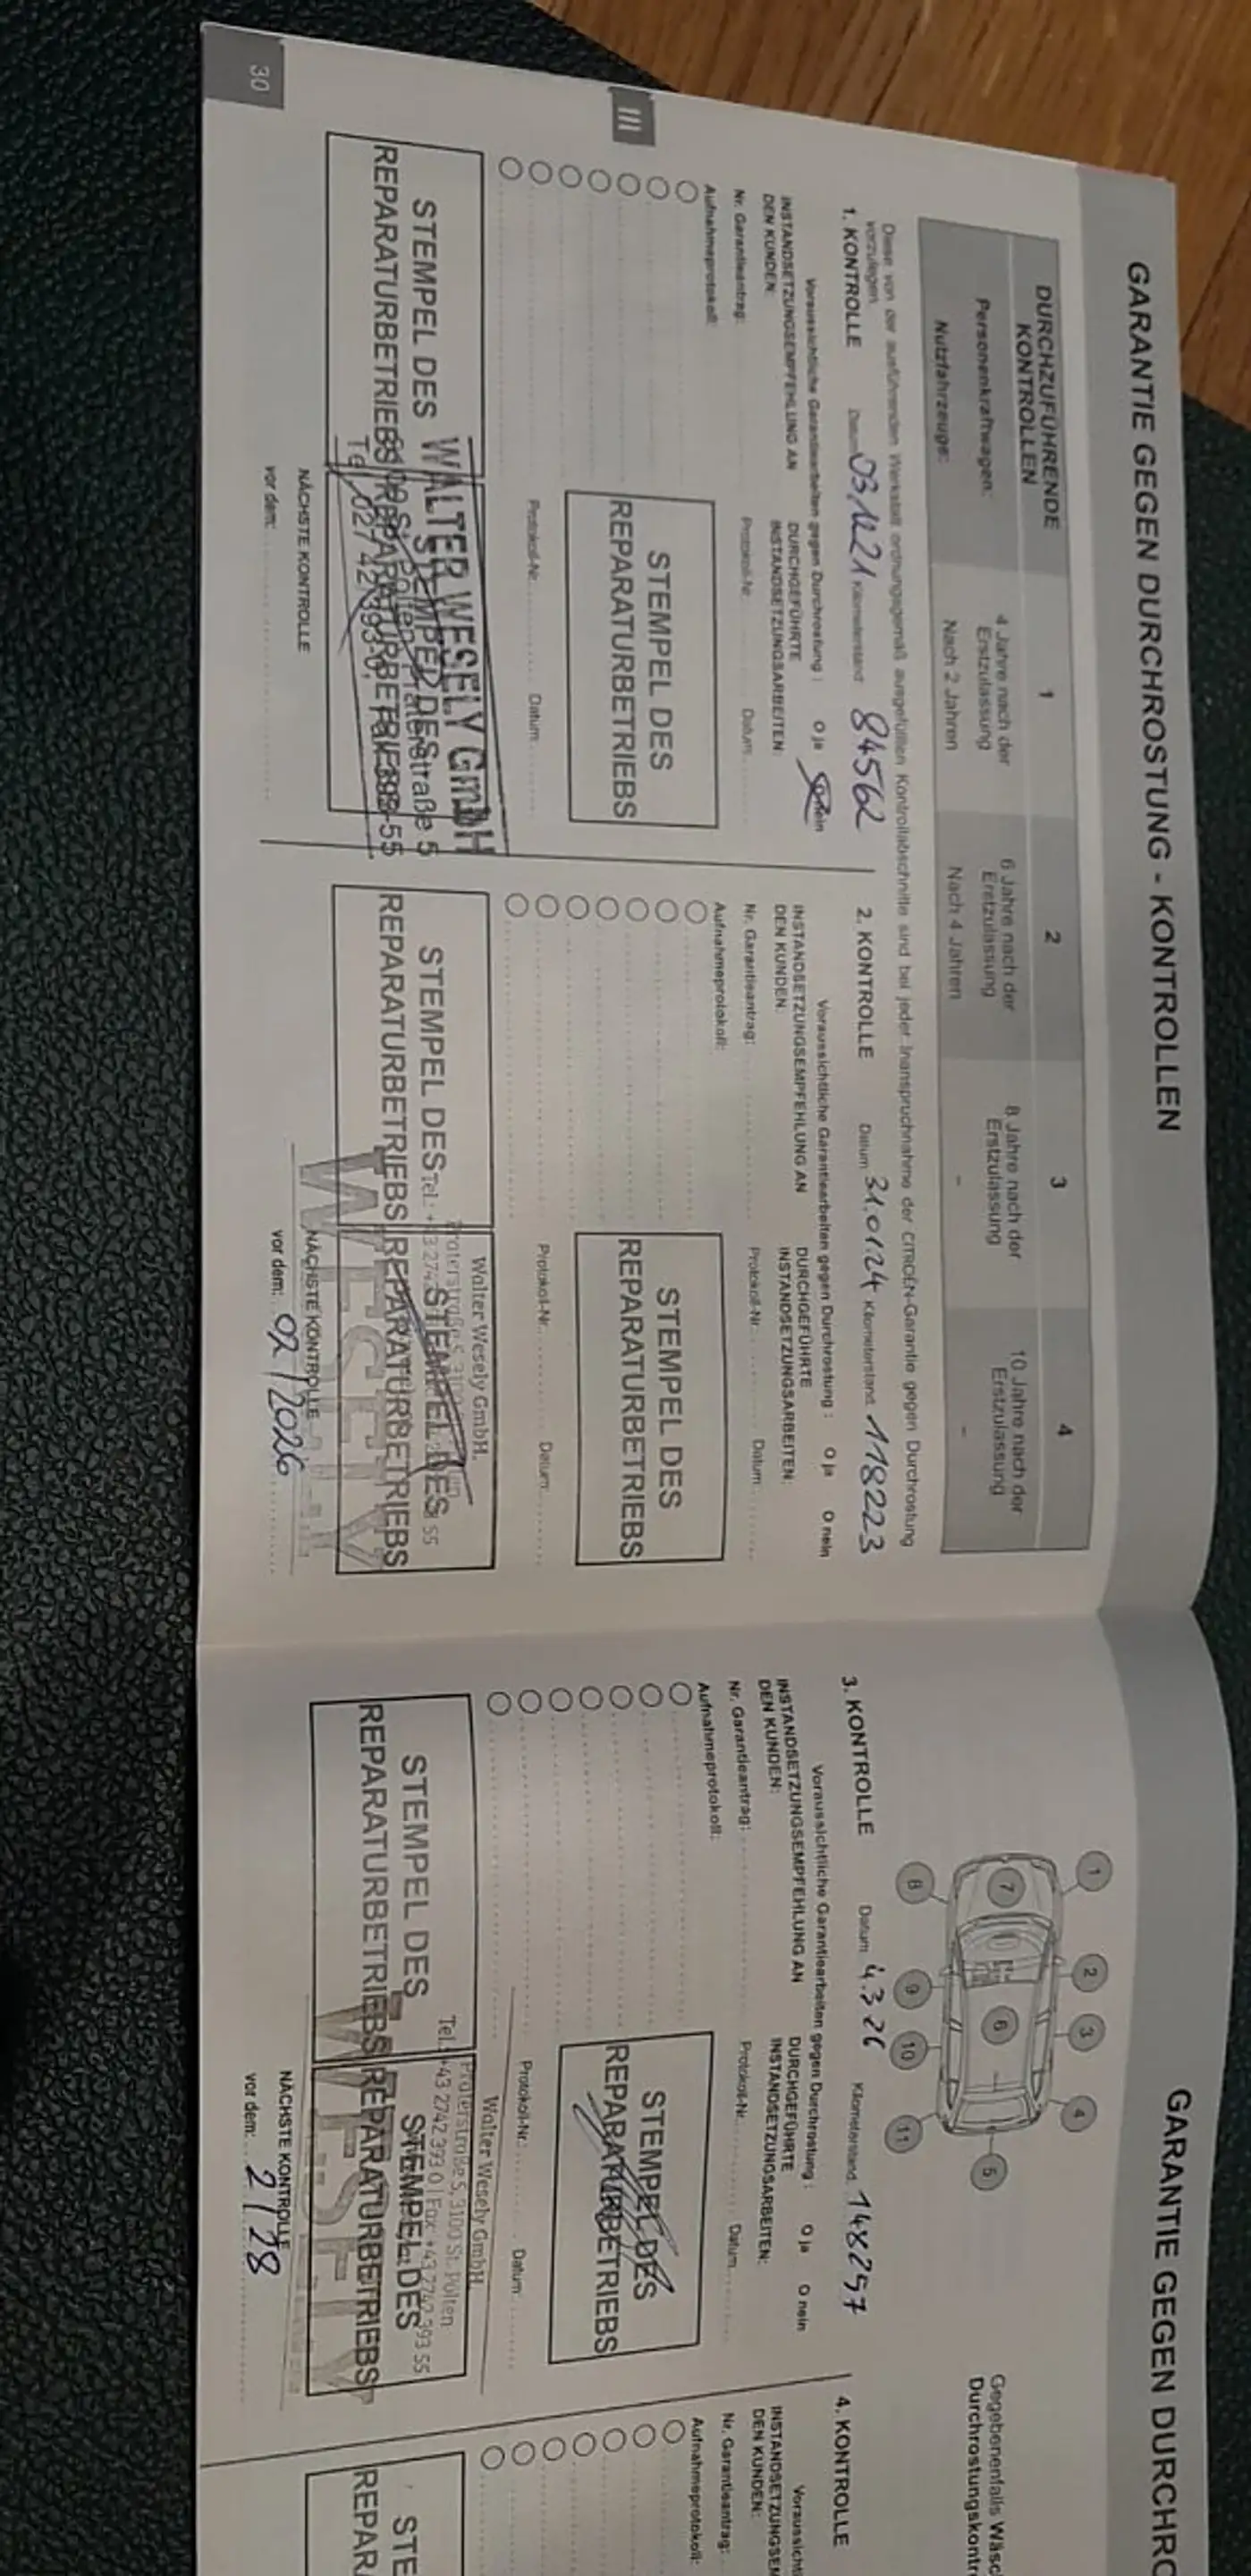 GARANTIE GEGEN DURCHROSTUNG - KONTROLLEN
DURCHZUFÜHRENDE KONTROLLEN 1 2 3 4
Personenkraftwagen: 4 Jahre nach der Erstzulassung 6 Jahre nach der Erstzulassung 8 Jahre nach der Erstzulassung 10 Jahre nach der Erstzulassung
Nutzfahrzeuge: Nach 2 Jahren Nach 4 Jahren - -
Diese von der ausführenden Werkstatt ordnungsgemäß ausgefüllten Kontrollabschnitte sind bei jeder Inanspruchnahme der CITROËN-Garantie gegen Durchrostung
vorzulegen.
1. KONTROLLE Datum Kilometerstand 84562
Voraussichtliche Garantiearbeiten gegen Durchrostung : O ja O nein
INSTANDSETZUNGSEMPFEHLUNG AN
DEN KUNDEN:
DURCHGEFÜHRTE
INSTANDSETZUNGSARBEITEN:
Nr. Garantieantrag:
Protokoll-Nr. Datum
Aufnahmeprotokoll:
STEMPEL DES
REPARATURBETRIEBS
Protokoll-Nr. Datum
STEMPEL DES
REPARATURBETRIEBS
STEMPEL DES
REPARATURBETRIEBS
WALTER WESELY GmbH
NÄCHSTE KONTROLLE
vor dem:
30
III
2. KONTROLLE Datum 31.01.24 Kilometerstand 118223
Voraussichtliche Garantiearbeiten gegen Durchrostung : O ja O nein
INSTANDSETZUNGSEMPFEHLUNG AN
DEN KUNDEN:
DURCHGEFÜHRTE
INSTANDSETZUNGSARBEITEN:
Nr. Garantieantrag:
Protokoll-Nr. Datum
Aufnahmeprotokoll:
STEMPEL DES
REPARATURBETRIEBS
Protokoll-Nr. Datum
STEMPEL DES
REPARATURBETRIEBS
STEMPEL DES
REPARATURBETRIEBS
Walter Wesely GmbH.
WESELY
NÄCHSTE KONTROLLE
vor dem: 02/2026
GARANTIE GEGEN DURCHR
1
2
3
4
5
6
7
8
9
10
11
Gegebenenfalls
Durchrostungskontr
3. KONTROLLE Datum 4.3.26 Kilometerstand
Voraussichtliche Garantiearbeiten gegen Durchrostung : O ja O nein
INSTANDSETZUNGSEMPFEHLUNG AN
DEN KUNDEN:
DURCHGEFÜHRTE
INSTANDSETZUNGSARBEITEN:
Nr. Garantieantrag:
Protokoll-Nr. Datum
Aufnahmeprotokoll:
STEMPEL DES
REPARATURBETRIEBS
Protokoll-Nr. Datum
STEMPEL DES
REPARATURBETRIEBS
STEMPEL DES
REPARATURBETRIEBS
Walter Wesely GmbH.
Praterstraße 5, 3100 St. Pölten
Tel.: +43 2742 393 0 | Fax: +43 2742 393 55
WESELY
NÄCHSTE KONTROLLE
vor dem: 2/28
4. KONTROLLE
Voraussichtl
INSTANDSETZUNGSEM
DEN KUNDEN:
Nr. Garantieantrag:
Aufnahmeprotokoll:
STE
REPAR